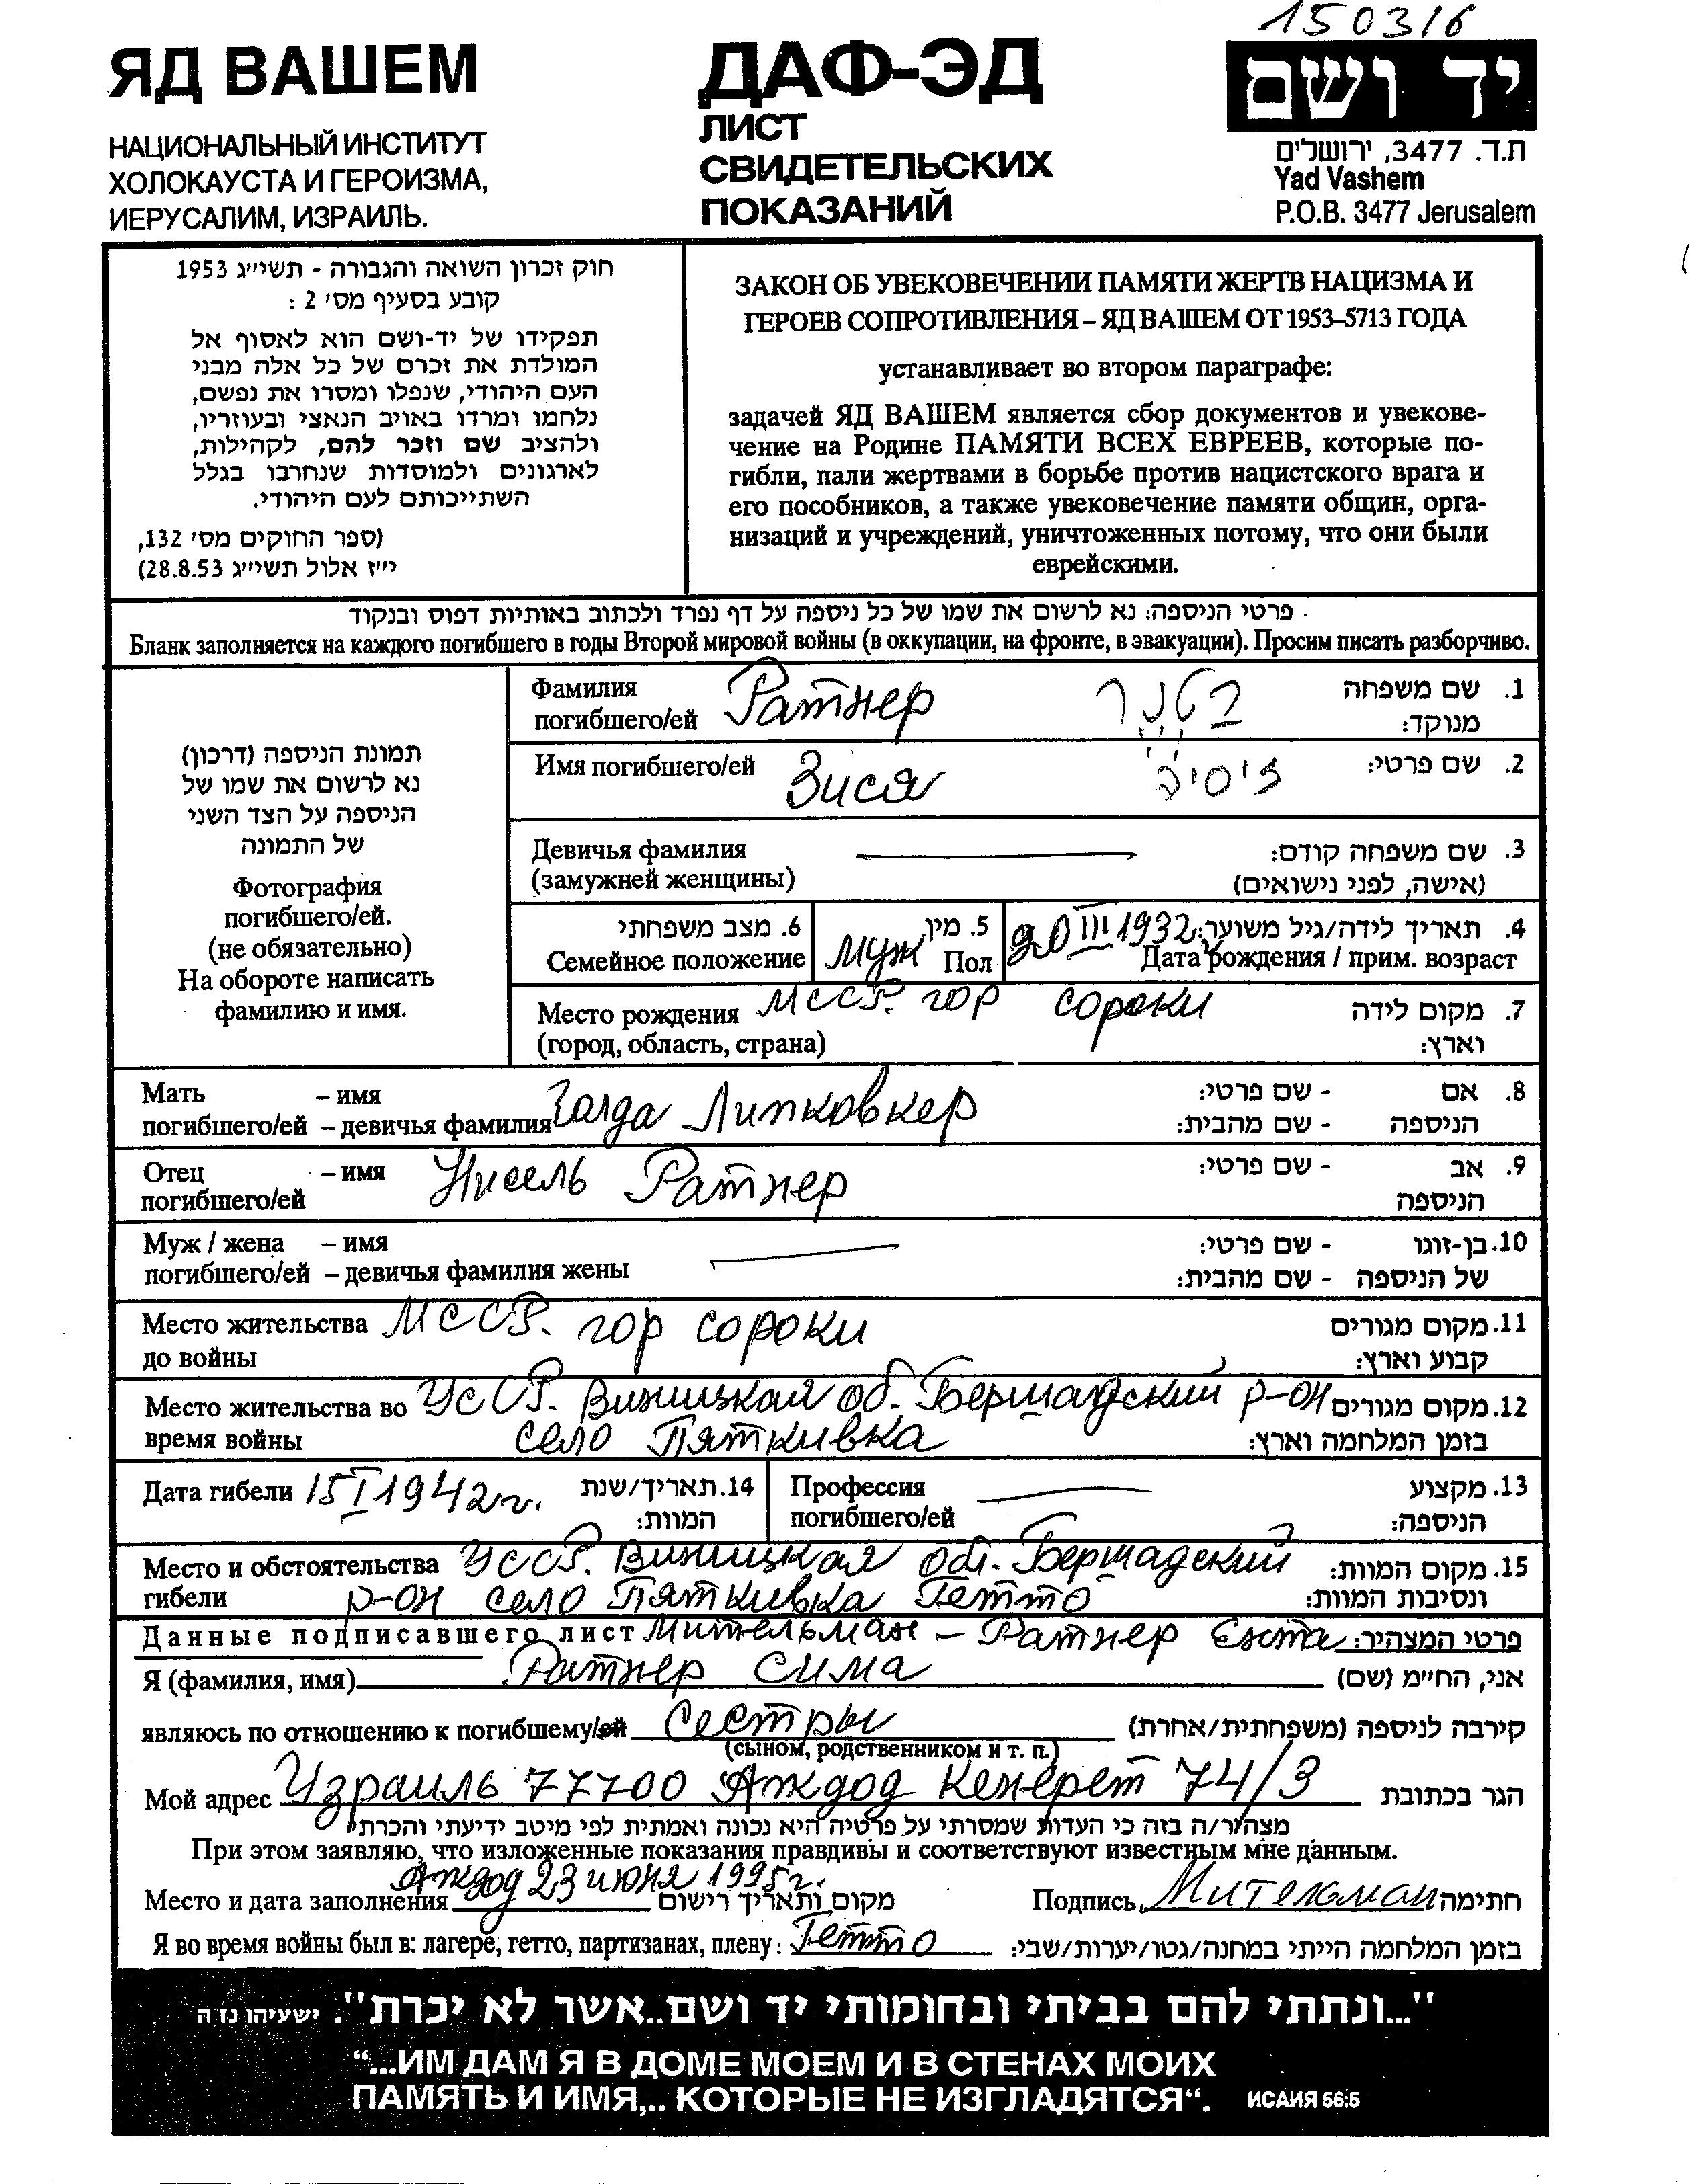 150316
ЯД ВАШЕМ
НАЦИОНАЛЬНЫЙ ИНСТИТУТ
ХОЛОКАУСТА И ГЕРОИЗМА,
ИЕРУСАЛИМ, ИЗРАИЛЬ.
ДАФ-ЭД
ЛИСТ
СВИДЕТЕЛЬСКИХ
ПОКАЗАНИЙ
יד ושם
ת.ד. 3477, ירושלים
Yad Vashem
P.O.B. 3477 Jerusalem
חוק זכרון השואה והגבורה - תשי״ג 1953
קובע בסעיף מס׳ 2 :
תפקידו של יד-ושם הוא לאסוף אל
המולדת את זכרם של כל אלה מבני
העם היהודי, שנפלו ומסרו את נפשם,
נלחמו ומרדו באויב הנאצי ובעוזריו,
ולהציב שם וזכר להם, לקהילות,
לארגונים ולמוסדות שנחרבו בגלל
השתייכותם לעם היהודי.
(ספר החוקים מס׳ 132,
י״ז אלול תשי״ג 28.8.53)
ЗАКОН ОБ УВЕКОВЕЧЕНИИ ПАМЯТИ ЖЕРТВ НАЦИЗМА И
ГЕРОЕВ СОПРОТИВЛЕНИЯ – ЯД ВАШЕМ ОТ 1953–5713 ГОДА
устанавливает во втором параграфе:
задачей ЯД ВАШЕМ является сбор документов и увекове-
чение на Родине ПАМЯТИ ВСЕХ ЕВРЕЕВ, которые по-
гибли, пали жертвами в борьбе против нацистского врага и
его пособников, а также увековечение памяти общин, орга-
низаций и учреждений, уничтоженных потому, что они были
еврейскими.
פרטי הניספה: נא לרשום את שמו של כל ניספה על דף נפרד ולכתוב באותיות דפוס ובנקוד
Бланк заполняется на каждого погибшего в годы Второй мировой войны (в оккупации, на фронте, в эвакуации). Просим писать разборчиво.
תמונת הניספה (דרכון)
נא לרשום את שמו של
הניספה על הצד השני
של התמונה
Фотография
погибшего/ей.
(не обязательно)
На обороте написать
фамилию и имя.
Фамилия Ратнер רטנר 1. שם משפחה
погибшего/ей מנוקד:
Имя погибшего/ей Зися זיסיה 2. שם פרטי:
Девичья фамилия 3. שם משפחה קודם:
(замужней женщины) (אישה, לפני נישואים)
6. מצב משפחתי 5. מין 20 III 1932 4. תאריך לידה/גיל משוער:
Семейное положение муж Пол Дата рождения / прим. возраст
Место рождения МССР. гор сороки 7. מקום לידה
(город, область, страна) וארץ:
Мать – имя 8. אם - שם פרטי:
погибшего/ей – девичья фамилия Голда Липковкер הניספה - שם מהבית:
Отец – имя Нисель Ратнер 9. אב - שם פרטי:
погибшего/ей הניספה
Муж / жена – имя 10. בן-זוגו - שם פרטי:
погибшего/ей – девичья фамилия жены של הניספה - שם מהבית:
Место жительства МССР. гор сороки 11. מקום מגורים
до войны קבוע וארץ:
Место жительства во УССР. Виницкая об. Бершадский р-он 12. מקום מגורים
время войны село Пяткивка בזמן המלחמה וארץ:
Дата гибели 15 I 1942 г. 14. תאריך/שנת Профессия 13. מקצוע
המוות: погибшего/ей הניספה:
Место и обстоятельства УССР. Виницкая обл. Бершадский 15. מקום המוות:
гибели р-он село Пяткивка Гетто ונסיבות המוות:
Данные подписавшего лист Мительман – Ратнер Ента פרטי המצהיר:
Я (фамилия, имя) Ратнер Сима אני, הח״מ (שם)
являюсь по отношению к погибшему/ей Сестры קירבה לניספה (משפחתית/אחרת)
(сыном, родственником и т. п.)
Мой адрес Израиль 77700 Аждод Кенерет 74/3 הגר בכתובת
מצהיר/ה בזה כי העדות שמסרתי על פרטיה היא נכונה ואמתית לפי מיטב ידיעתי והכרתי
При этом заявляю, что изложенные показания правдивы и соответствуют известным мне данным.
Место и дата заполнения Аждод 23 июня 1995 г. מקום ותאריך רישום Подпись Мительман חתימה
Я во время войны был в: лагере, гетто, партизанах, плену: Гетто בזמן המלחמה הייתי במחנה/גטו/יערות/שבי:
"...ונתתי להם בביתי ובחומותי יד ושם..אשר לא יכרת". ישעיהו נו ה
“...ИМ ДАМ Я В ДОМЕ МОЕМ И В СТЕНАХ МОИХ
ПАМЯТЬ И ИМЯ,.. КОТОРЫЕ НЕ ИЗГЛАДЯТСЯ“. ИСАИЯ 56:5